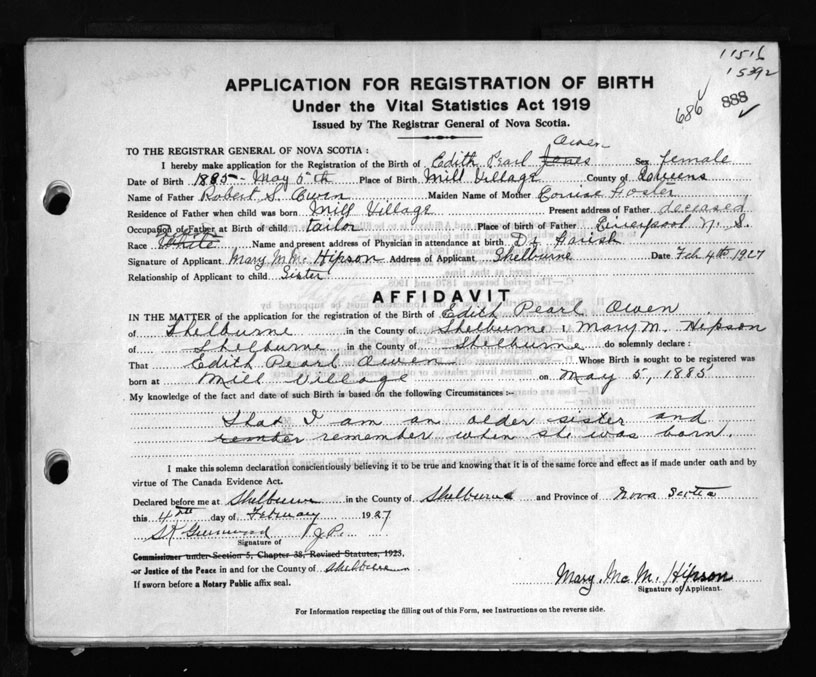 11516
15392
686
888
APPLICATION FOR REGISTRATION OF BIRTH
Under the Vital Statistics Act 1919
Issued by The Registrar General of Nova Scotia.
TO THE REGISTRAR GENERAL OF NOVA SCOTIA :
Owen
I hereby make application for the Registration of the Birth of Edith Pearl Jones Sex female
Date of Birth 1885 - May 5th Place of Birth Mill Village County of Queens
Name of Father Robert S. Owen Maiden Name of Mother Louise Foster
Residence of Father when child was born Mill Village Present address of Father deceased
Occupation of Father at Birth of child tailor Place of birth of Father Liverpool N. S.
Race White Name and present address of Physician in attendance at birth Dr Farish
Signature of Applicant Mary Mc M. Hipson Address of Applicant Shelburne Date Feb 4th 1927
Relationship of Applicant to child Sister
AFFIDAVIT
IN THE MATTER of the application for the registration of the Birth of Edith Pearl Owen
of Shelburne in the County of Shelburne I Mary M. Hipson
of Shelburne in the County of Shelburne do solemnly declare :
That Edith Pearl Owen Whose Birth is sought to be registered was
born at Mill Village on May 5, 1885
My knowledge of the fact and date of such Birth is based on the following Circumstances :-
That I am an older sister and
remember when she was born.
I make this solemn declaration conscientiously believing it to be true and knowing that it is of the same force and effect as if made under oath and by
virtue of The Canada Evidence Act.
Declared before me at Shelburne in the County of Shelburne and Province of Nova Scotia
this 4th day of February 1927
J.P.
Signature of
Commissioner under Section 5, Chapter 38, Revised Statutes, 1923.
or Justice of the Peace in and for the County of Shelburne
If sworn before a Notary Public affix seal.
Mary. Mc M. Hipson
Signature of Applicant.
For Information respecting the filling out of this Form, see Instructions on the reverse side.